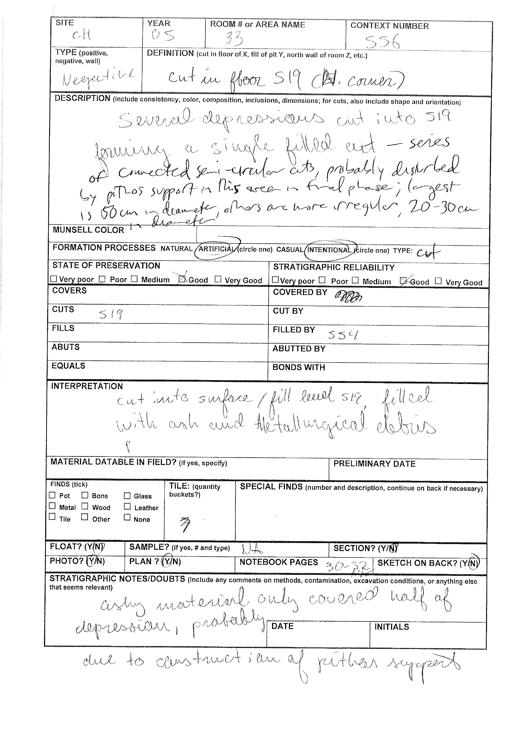 SITE YEAR ROOM # or AREA NAME CONTEXT NUMBER
CH 05 33 556
TYPE (positive, negative, wall) DEFINITION (cut in floor of X, fill of pit Y, north wall of room Z, etc.)
Negative cut in floor 519 (N. corner)
DESCRIPTION (include consistency, color, composition, inclusions, dimensions; for cuts, also include shape and orientation)
Several depressions cut into 519
forming a single filled cut – series
of connected semi-circular cuts, probably disturbed
by pithos support in this area in final phase; largest
is 50cm in diameter, others are more irregular, 20-30cm
in diameter
MUNSELL COLOR
FORMATION PROCESSES NATURAL / ARTIFICIAL (circle one) CASUAL / INTENTIONAL (circle one) TYPE: cut
STATE OF PRESERVATION STRATIGRAPHIC RELIABILITY
Very poor Poor Medium Good Very Good Very poor Poor Medium Good Very Good
COVERS COVERED BY
CUTS 519 CUT BY
FILLS FILLED BY 554
ABUTS ABUTTED BY
EQUALS BONDS WITH
INTERPRETATION
cut into surface / fill level 519, filled
with ash and metallurgical debris
MATERIAL DATABLE IN FIELD? (if yes, specify) PRELIMINARY DATE
FINDS (tick) TILE: (quantity buckets?) SPECIAL FINDS (number and description, continue on back if necessary)
Pot Bone Glass
Metal Wood Leather
Tile Other None
FLOAT? (Y/N) SAMPLE? (if yes, # and type) NA SECTION? (Y/N)
PHOTO? (Y/N) PLAN ? (Y/N) NOTEBOOK PAGES 30-32 SKETCH ON BACK? (Y/N)
STRATIGRAPHIC NOTES/DOUBTS (Include any comments on methods, contamination, excavation conditions, or anything else that seems relevant)
ashy material only covered half of
depression, probably
DATE INITIALS
due to construction of pithos support